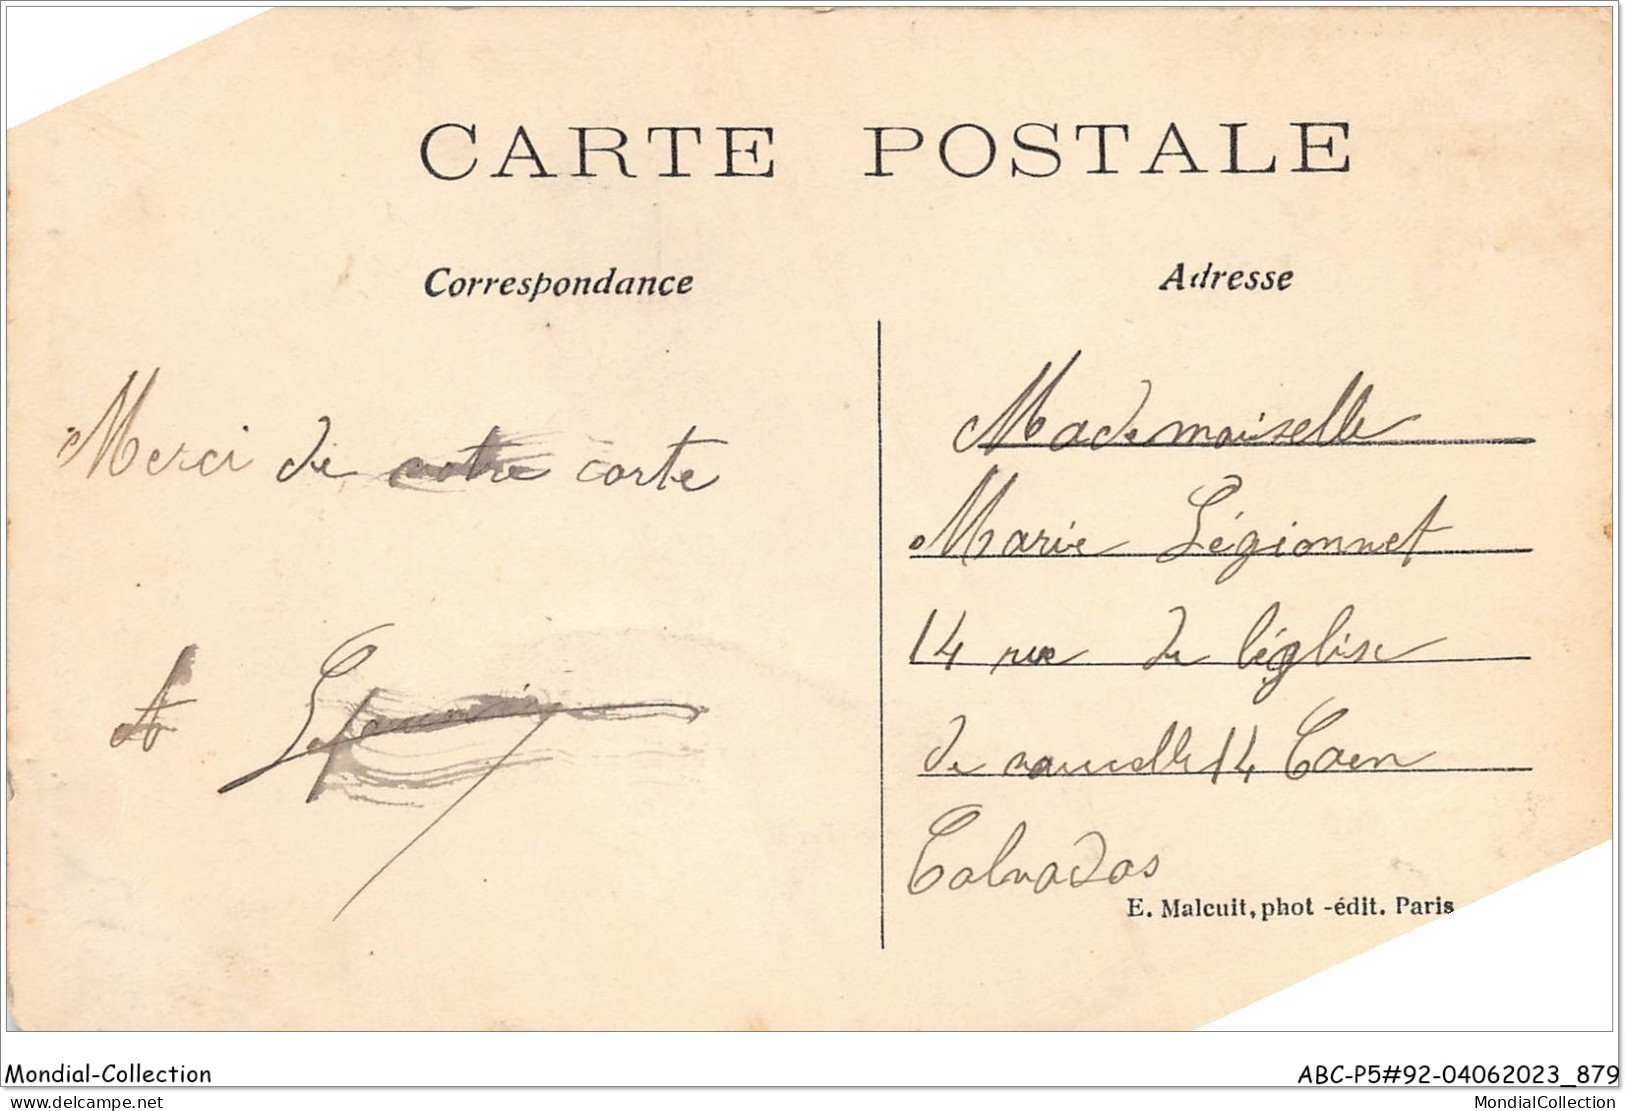 CARTE POSTALE
Correspondance
Adresse
Merci de votre carte
A
Mademoiselle
Marie Légionnet
14 rue de l'église
de vaucelle 14 Caen
Calvados
E. Malcuit, phot-édit. Paris
Mondial-Collection
ABC-P5#92-04062023_879
www.delcampe.net
MondialCollection